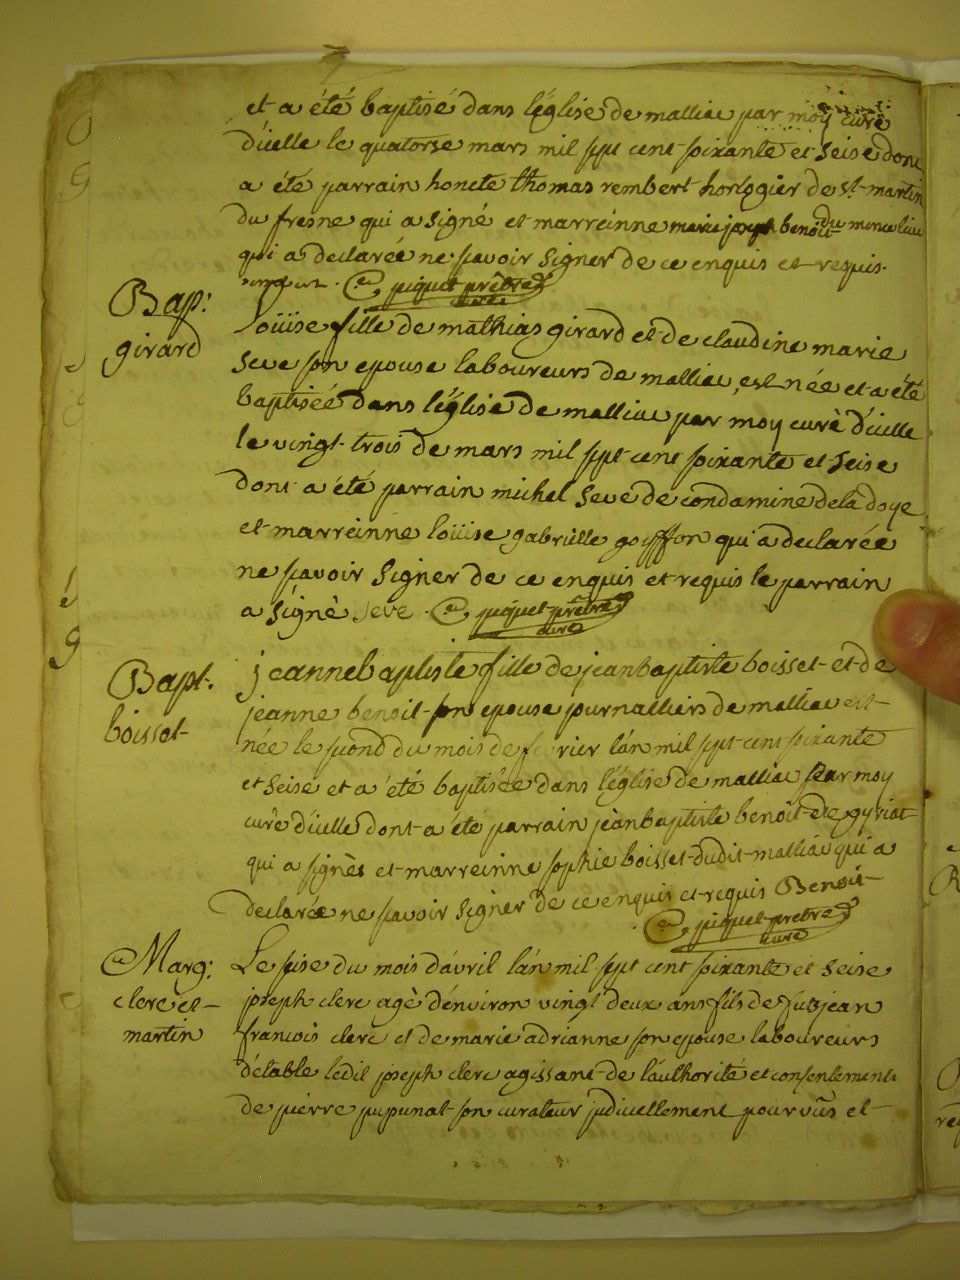 et a été baptisé dans l'église de malliac par moy curé
d'icelle le quatorse mars mil sept cent soixante et seise dont
a été parrain honete thomas rembert horlogier de St martin
du fresne qui a signé et marreinne marie joseph benoit du
qui a declarée ne scavoir signer de ce enquis et requis.
piquet prêtre
curé
Bap:
girard
Loüise fille de mathias girard et de claudine marie
seve son epouse laboureurs de malliac, est née et a été
baptisée dans l'église de malliac par moy curè d'icelle
le vingt trois de mars mil sept cent soixante et seise
dont a été parrain michel seve de condamine de la doye
et marreinne loüise gabrielle goiffon qui a declarée
ne scavoir signer de ce enquis et requis le parrain
a signè seve piquet prêtre
curé
Bapt.
boisset
jeanne baptiste fille de jean baptiste boisset et de
jeanne benoit son epouse journalliers de malliac est
née le second du mois de fevrier l'an mil sept cent soixante
et seise et a été baptisée dans l'église de malliac par moy
curè d'icelle dont a été parrain jean baptiste benoit de gyriat
qui a signès et marreinne sophie boisset dudit malliac qui a
declarée ne scavoir signer de ce enquis et requis Benoit
piquet pretre
curé
Marg:
clerc et
martin
Le seise du mois d'avril l'an mil sept cent soixante et seise
joseph clerc agè d'environ vingt deux ans fils de jean
francois clerc et de marie adrianne son epouse laboureurs
d'étable ledit joseph clerc agissant de l'authorité et consentement
de pierre pupunat son curateur judiciellement pourvûs et